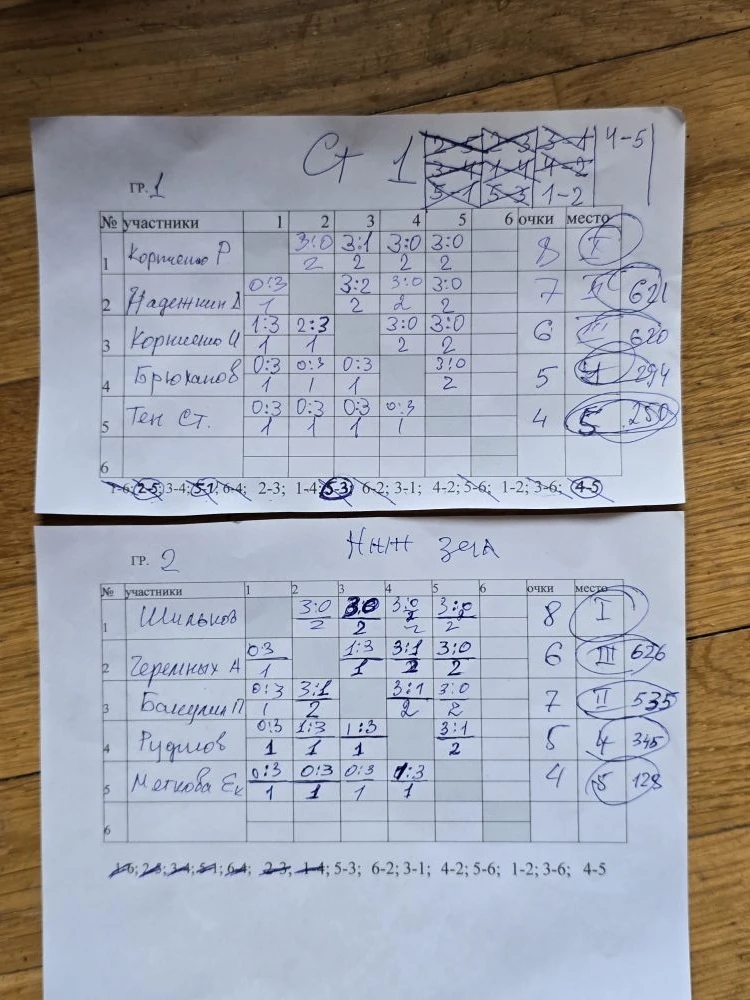 Ст 1 2-5 2-3 3-1 4-5
3-4 1-4 4-2
5-1 5-3 1-2
ГР. 1
№ участники 1 2 3 4 5 6 очки место
1 Корниенко Р 3:0 3:1 3:0 3:0 8 I
2 2 2 2
2 Надежкин Д 0:3 3:2 3:0 3:0 7 II 621
1 2 2 2
3 Корниенко И 1:3 2:3 3:0 3:0 6 III 620
1 1 2 2
4 Брюханов 0:3 0:3 0:3 3:0 5 4 294
1 1 1 2
5 Тен Ст. 0:3 0:3 0:3 0:3 4 5 250
1 1 1 1
6
1-6; 2-5; 3-4; 5-1; 6-4; 2-3; 1-4; 5-3; 6-2; 3-1; 4-2; 5-6; 1-2; 3-6; 4-5
ГР. 2 Ниж зала
№ участники 1 2 3 4 5 6 очки место
1 Шильков 3:0 3:0 3:0 3:0 8 I
2 2 2 2
2 Черемных А 0:3 1:3 3:1 3:0 6 III 626
1 1 2 2
3 Балсулин П 0:3 3:1 3:1 3:0 7 II 535
1 2 2 2
4 0:3 1:3 1:3 3:1 5 4 345
1 1 1 2
5 Меткова Ек 0:3 0:3 0:3 1:3 4 5 128
1 1 1 1
6
1-6; 2-5; 3-4; 5-1; 6-4; 2-3; 1-4; 5-3; 6-2; 3-1; 4-2; 5-6; 1-2; 3-6; 4-5